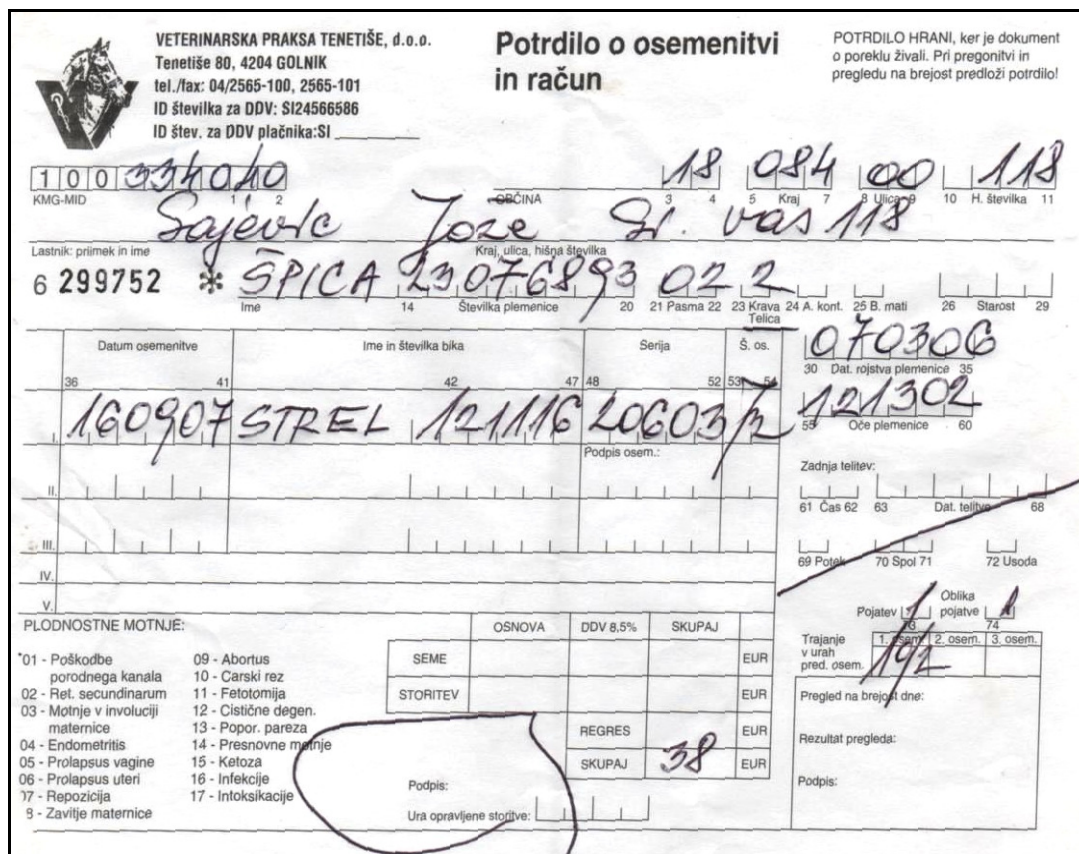 VETERINARSKA PRAKSA TENETIŠE, d.o.o.
Tenetiše 80, 4204 GOLNIK
tel./fax: 04/2565-100, 2565-101
ID številka za DDV: SI24566586
ID štev. za DDV plačnika:SI
Potrdilo o osemenitvi
in račun
POTRDILO HRANI, ker je dokument
o poreklu živali. Pri pregonitvi in
pregledu na brejost predloži potrdilo!
100 334040 18 084 00 118
KMG-MID 1 2 OBČINA 3 4 5 Kraj 7 8 Ulica 9 10 H. številka 11
Sajevic Jože Sr. vas 118
Lastnik: priimek in ime Kraj, ulica, hišna številka
6 299752 * ŠPICA 23076893 02 2
Ime 14 Številka plemenice 20 21 Pasma 22 23 Krava 24 A. kont. 25 B. mati 26 Starost 29
Telica
Datum osemenitve Ime in številka bika Serija Š. os.
36 41 42 47 48 52 53 54
070306
30 Dat. rojstva plemenice 35
I. 160907 STREL 121116 20603
121302
55 Oče plemenice 60
Podpis osem.:
Zadnja telitev:
II.
61 Čas 62 63 Dat. telitve 68
III.
69 Potek 70 Spol 71 72 Usoda
IV.
V.
Pojatev Oblika
pojatve
73 74
Trajanje
v urah
pred. osem.
1. osem. 2. osem. 3. osem.
Pregled na brejost dne:
Rezultat pregleda:
Podpis:
PLODNOSTNE MOTNJE:
01 - Poškodbe
porodnega kanala
02 - Ret. secundinarum
03 - Motnje v involuciji
maternice
04 - Endometritis
05 - Prolapsus vagine
06 - Prolapsus uteri
07 - Repozicija
8 - Zavitje maternice
09 - Abortus
10 - Carski rez
11 - Fetotomija
12 - Cistične degen.
13 - Popor. pareza
14 - Presnovne motnje
15 - Ketoza
16 - Infekcije
17 - Intoksikacije
OSNOVA DDV 8,5% SKUPAJ
SEME EUR
STORITEV EUR
REGRES EUR
SKUPAJ 38 EUR
Podpis:
Ura opravljene storitve: